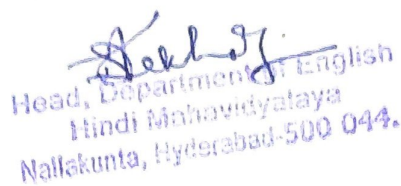 Head, Department of English
Hindi Mahavidyalaya
Nallakunta, Hyderabad-500 044.